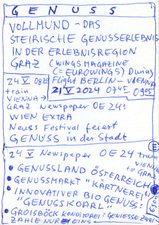 GENUSS
VOLLMUND - DAS
STEIRISCHE GENUSSERLEBNIS
IN DER ERLEBNISREGION
GRAZ (WINGSMAGAZINE
(=EUROWINGS) During
Flight BERLIN - VIENNA
24 V OE24
train
VIENNA →
GRAZ
21 V 2024 0745
0905
Newspaper OE24:
WIEN EXTRA
Neues Festival feiert
GENUSS in der Stadt
24 V Newspaper OE24 train
to GRAZ
• GENUSSLAND ÖSTERREICH
• GENUSSMARKT "KÄRTNEREI"
• INNOVATIVER BIO GENUSS:
"GENUSSKORAL"
• GROISBÖCK Konditorei: GENIESSE ZWEI
ZAHLE NUR EINS